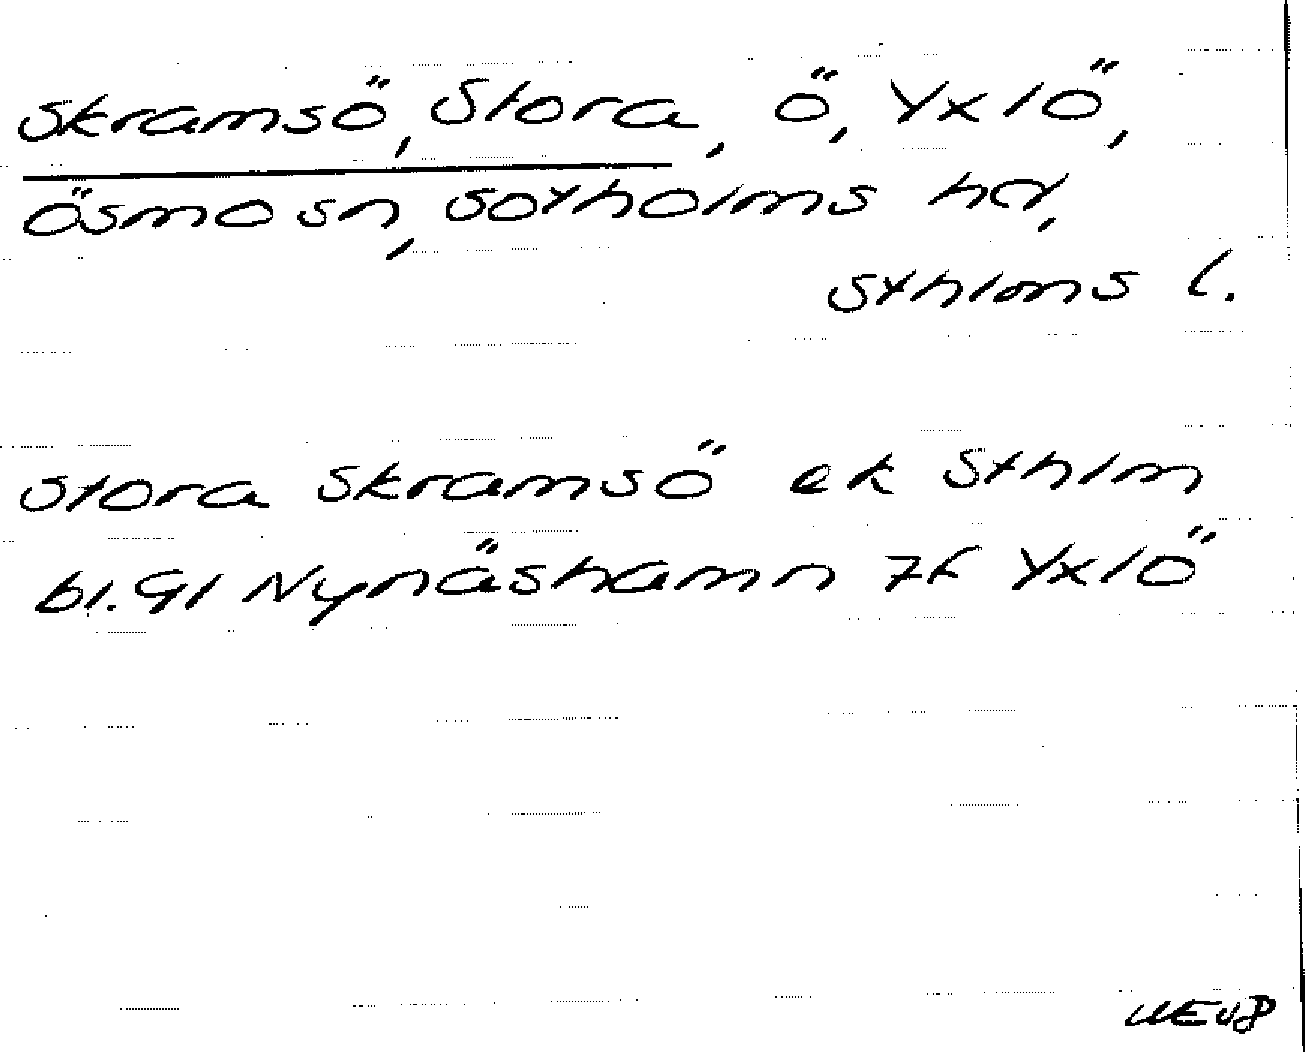 Skramsö, Stora, ö, Yxlö,
Ösmo sn, Sotholms hd,
Sthlms l.
Stora Skramsö ek Sthlm
bl. 91 Nynäshamn 7f Yxlö